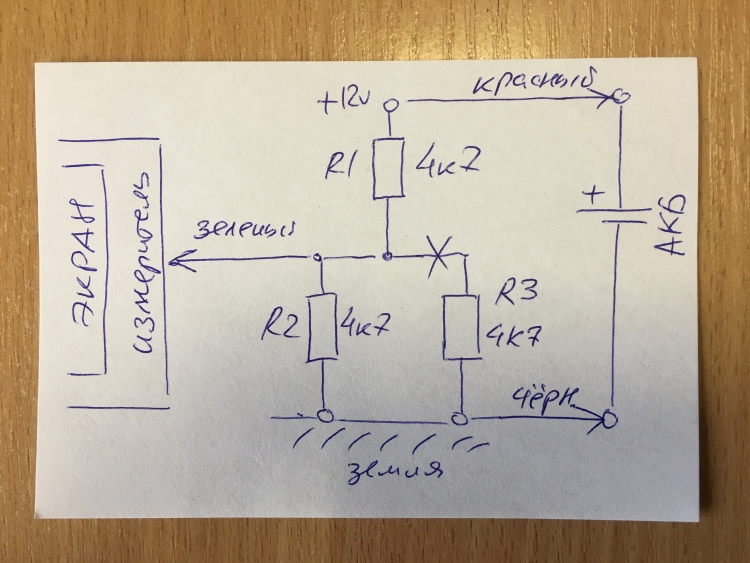 красный
+12v
R1 4к7
АКБ
+
зеленый
ЭКРАН
измеритель
R2 4к7
R3
4к7
чёрн.
земля